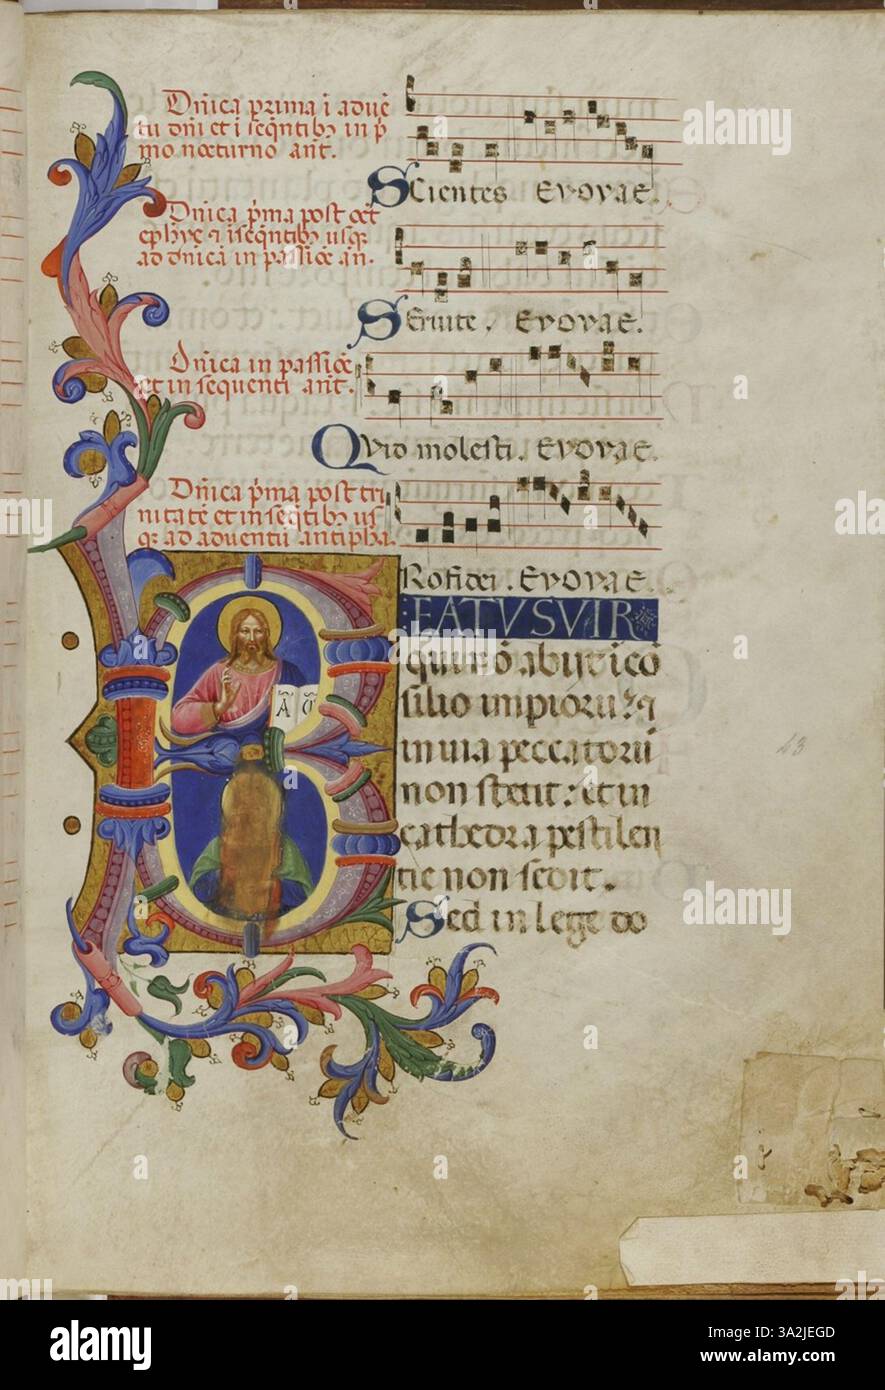 Dñica prima i aduē
tu dñi et i seqñtibȝ in p̄
mo nocturno ant.
Scientes Evovae.
Dñica p̄ma post oct
epħye ⁊ i seqñtibȝ usqȝ
ad dñicā in passiōe an.
Seruite. Evovae.
Dñica in passiōe
et in sequenti ant.
Qvid molesti. Evovae.
Dñica p̄ma post tri
nitatē et in seqñtibȝ us
qȝ ad aduentū antipha.
Rofidei. Evovae.
BEATUS VIR
qui nō abijt i cō
silio impioruȝ ⁊
in uia peccatorū
non stetit: et in
cathedra pestilen
tie non sedit.
Sed in lege do
A Ω
43
alamy
Image ID: 3A2JEGD
www.alamy.com